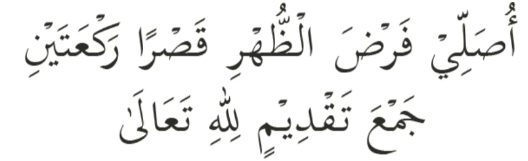 أُصَلِّيْ فَرْضَ الْظُّهْرِ قَصْرًا رَكْعَتَيْنِ
جَمْعَ تَقْدِيْمٍ لِلّٰهِ تَعَالَىٰ